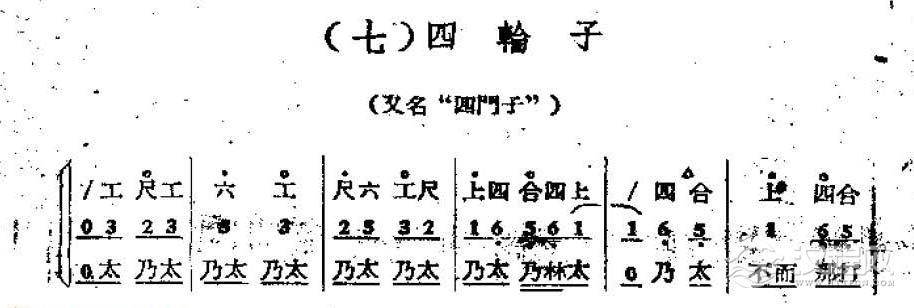 (七)四輪子
(又名“四門子”)
/工 尺工 六 工 尺六 工尺 上四 合四上 / 四 合 上 四合
0 3 2 3 5 3 2 5 3 2 1 6 5 6 1 1 6 5 1 6 5
0太 乃太 乃太 乃太 乃太 乃太 乃太 乃林太 0 乃 太 不而 打